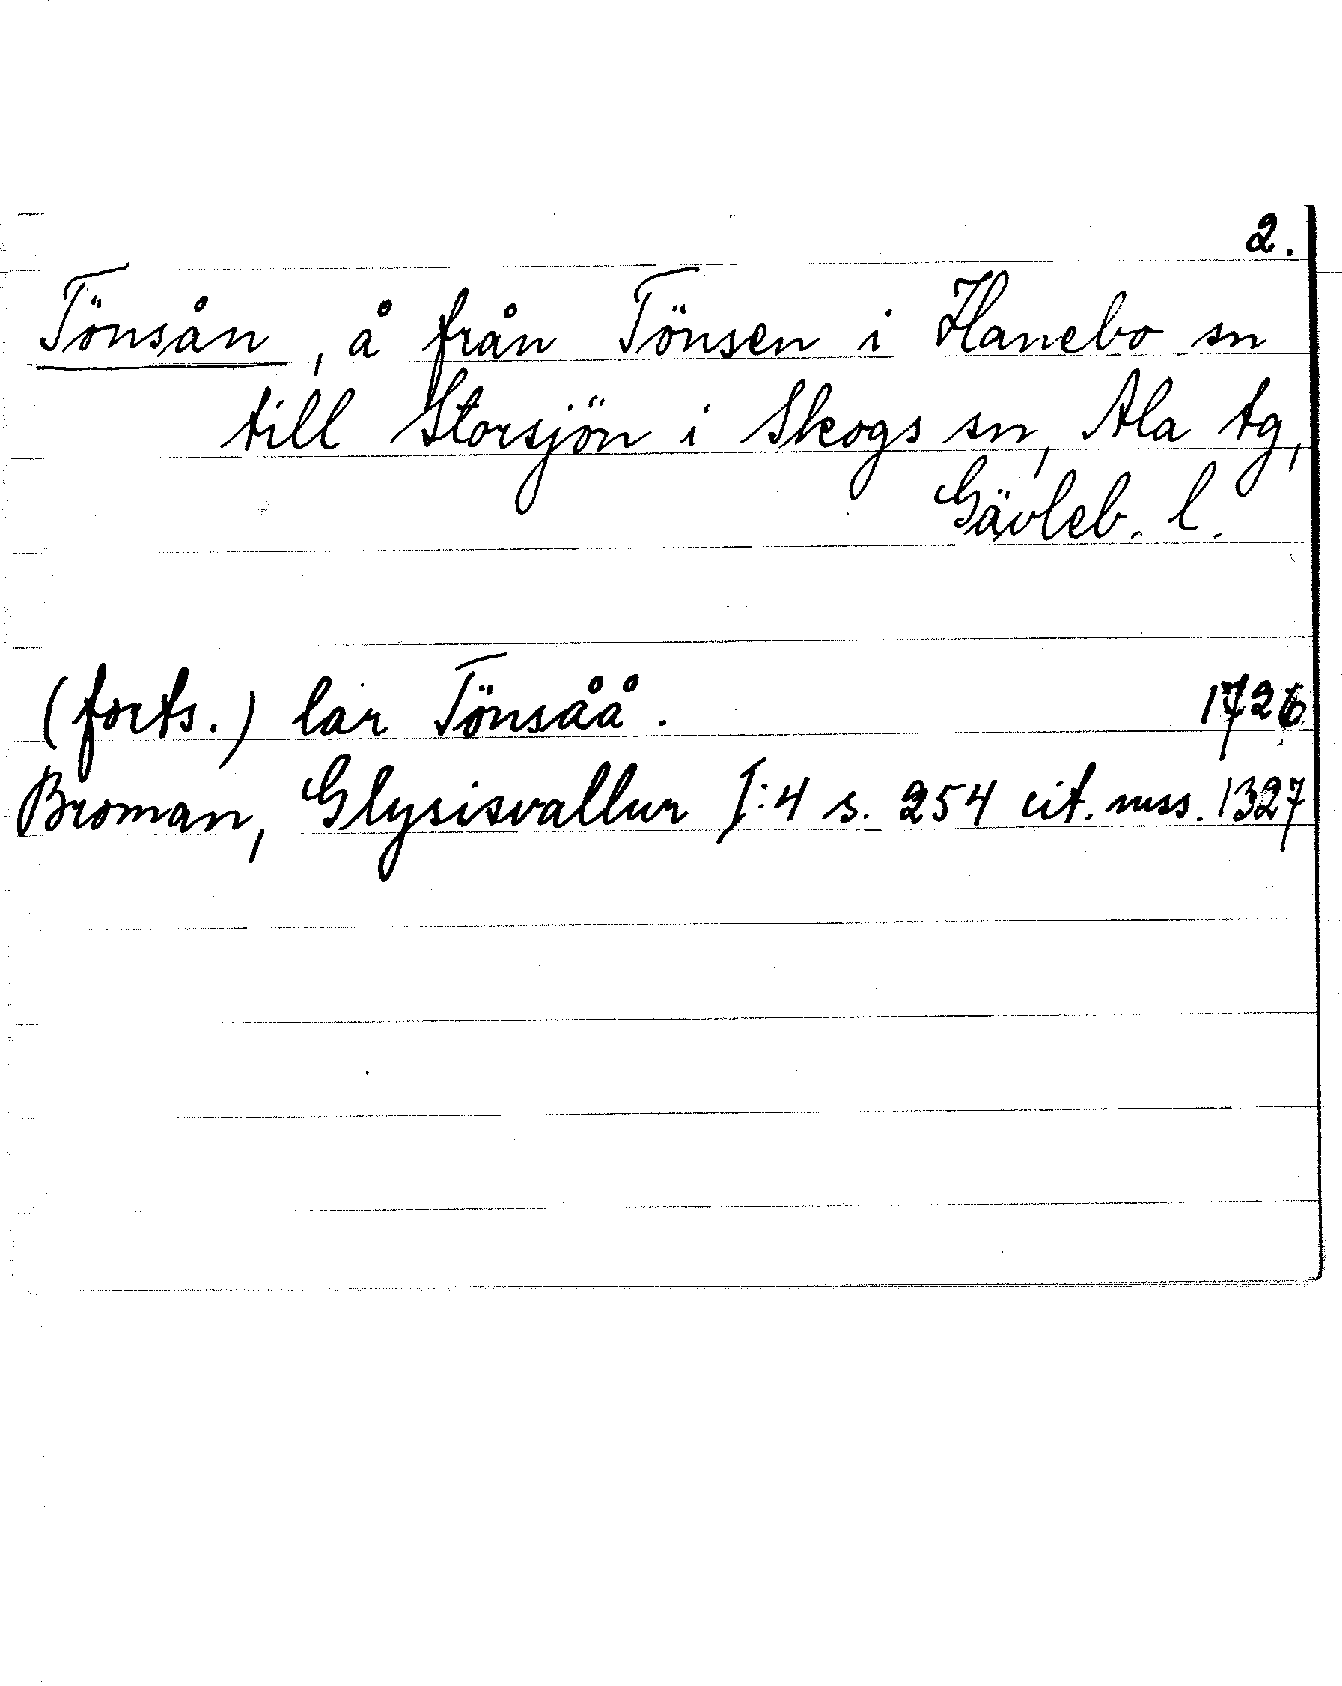 2.
Tönsån, å från Tönsen i Hanebo sn
till Storsjön i Skogs sn, Ala tg,
Gävleb. l.
(forts.) lär Tönsåå. 1726
Broman, Glysisvallur I:4 s. 254 cit. mss. 1327